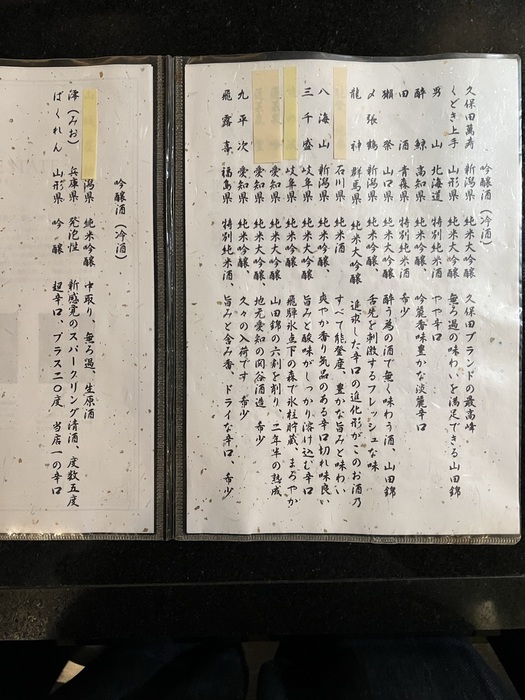 吟醸酒（冷酒）
久保田萬寿 新潟県 純米大吟醸 久保田ブランドの最高峰
くどき上手 山形県 純米大吟醸、無ろ過の味わいを満足できる山田錦
男山 北海道 特別純米酒 やや辛口
酔鯨 高知県 純米吟醸、吟麗香味豊かな淡麗辛口
田酒 青森県 特別純米酒 希少
獺祭 山口県 純米大吟醸、酔う為の酒で無く味わう酒、山田錦
〆張鶴 新潟県 純米吟醸、舌先を刺激するフレッシュな味
龍神 群馬県 純米大吟醸 追求した辛口の進化形がこのお酒乃
石川県 純米酒 すべて能登産、豊かな旨みと味わい
八海山 新潟県 純米吟醸、爽やか香り気品のある辛口切れ味良い
三千盛 岐阜県 純米大吟醸、旨みと酸味がしっかり溶け込む辛口
岐阜県 純米吟醸、飛騨氷点下の森で氷柱貯蔵、まろやか
愛知県 純米吟醸、山田錦の六割を削り、二年半の熟成
愛知県 純米大吟醸 地元愛知の関谷酒造 希少
九平次 愛知県 純米大吟醸 久々の入荷です 希少
飛露喜 福島県 特別純米酒、旨みと含み香、ドライな辛口、希少
吟醸酒（冷酒）
潟県 純米吟醸 中取り、無ろ過、生原酒
澪（みお） 兵庫県 発泡性 新感覚のスパークリング清酒、度数五度
ばくれん 山形県 吟醸 超辛口、プラス二〇度 当店一の辛口